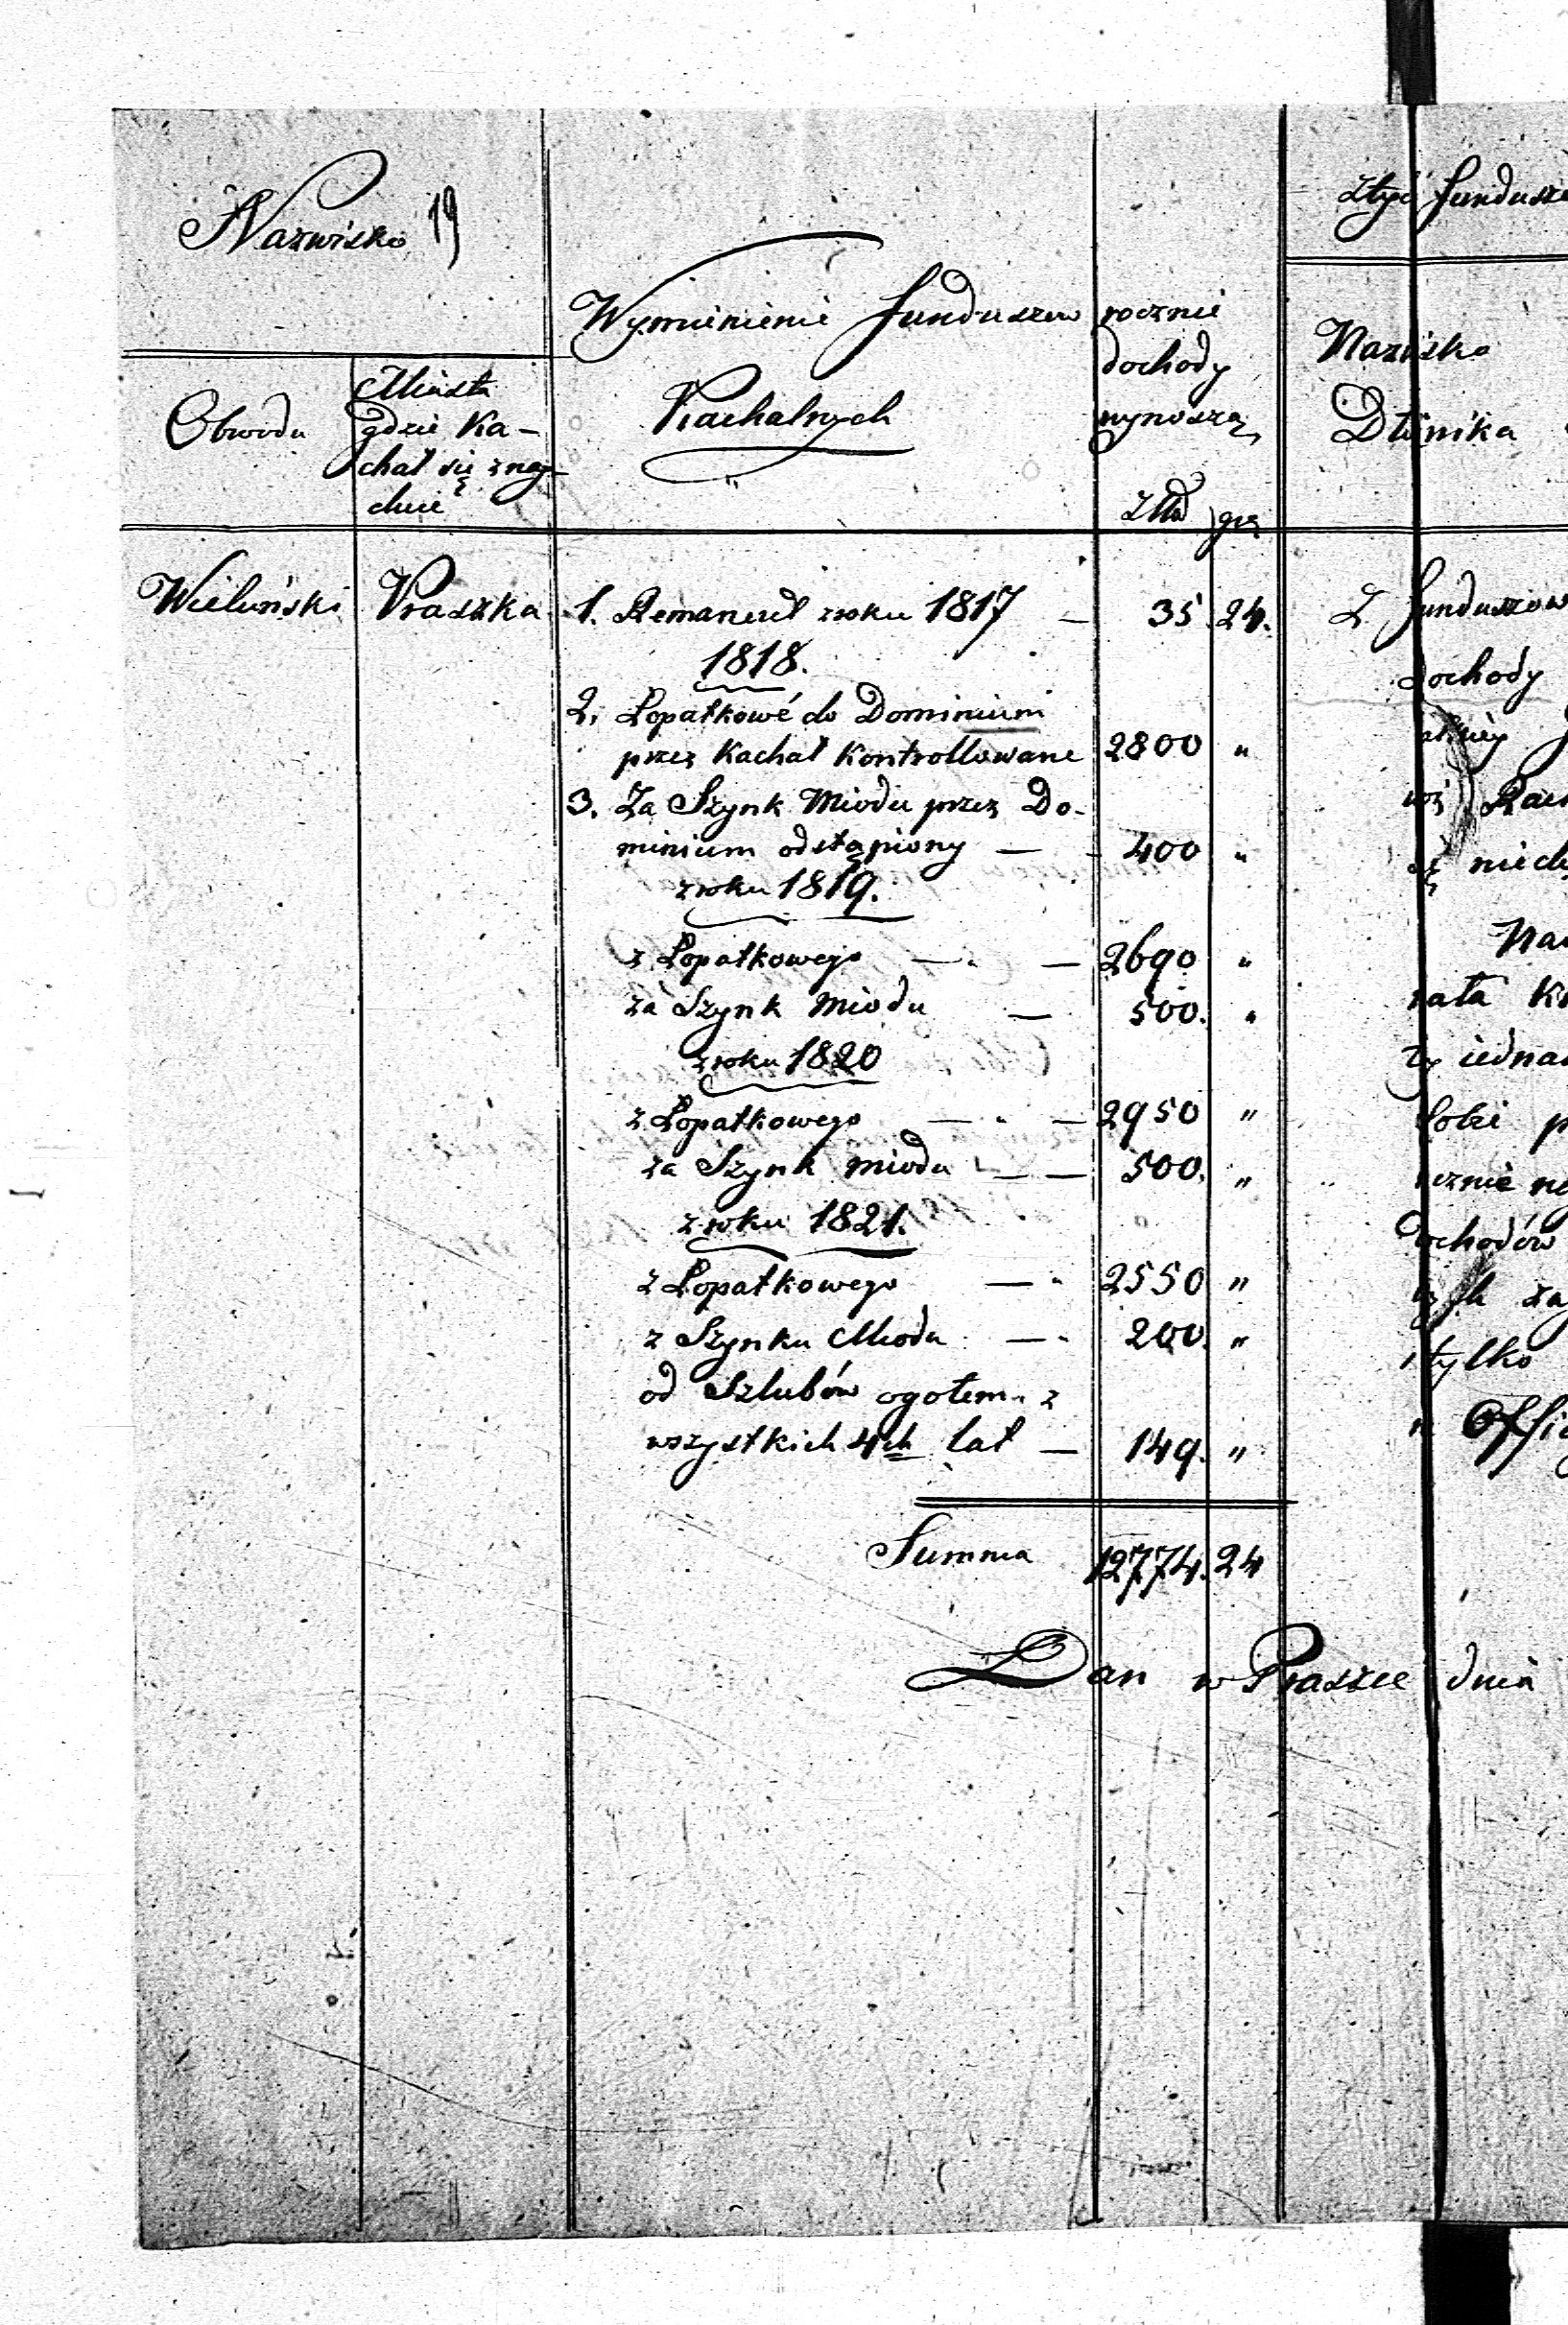 Nazwisko 19
Obwodu
Miasta
gdzie Ka-
chał się znay-
duie
Wymienienie funduszow
Kachalnych
rocznie
dochody
wynoszą
Złd gry
Wieluński Praszka
1. Remanent z roku 1817 — 35. 24.
1818.
2. Łopatkowé do Dominium
przez Kachał Kontrollowane 2800 "
3. Za Szynk Miodu przez Do-
minium odstąpiony — - 400 "
z roku 1819.
z Łopatkowego — - — 2690 "
za Szynk Miodu — 500. "
z roku 1820
z Łopatkowego — - — 2950 "
za Szynk miodu — — 500. "
z roku 1821.
z Łopatkowego — - 2550 "
z Szynku Miodu — - 200. "
od Szlubów ogołem z
wszystkich 4ch lat — 149. "
Summa 12774. 24
Dan w Praszce dnia
Ztych fundusz
Nazwisko
Dłużnika
Z funduszow
dochody
niedo
Na
iedna
sobie p
dochodów
tylko
Offi